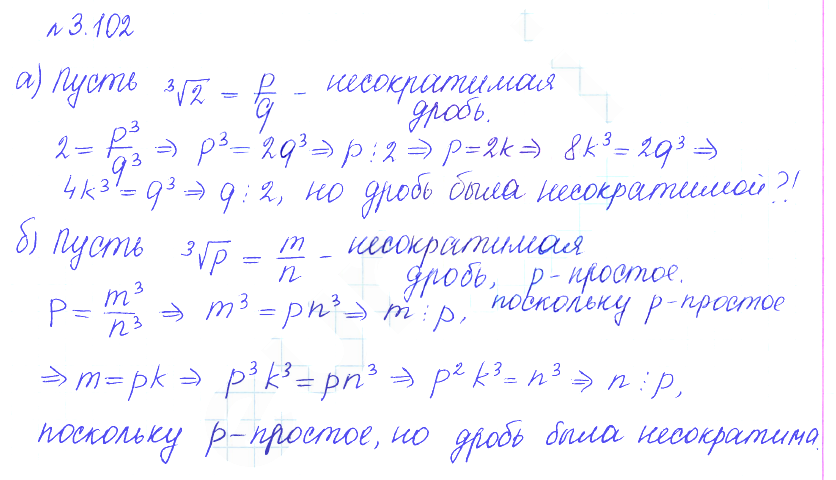 №3.102
а) Пусть ³√2 = p/q - несократимая дробь.
2 = p³/q³ ⇒ p³ = 2q³ ⇒ p ⋮ 2 ⇒ p = 2k ⇒ 8k³ = 2q³ ⇒
4k³ = q³ ⇒ q ⋮ 2, но дробь была несократимой?!
б) Пусть ³√p = m/n - несократимая дробь, p - простое.
p = m³/n³ ⇒ m³ = pn³ ⇒ m ⋮ p, поскольку p - простое
⇒ m = pk ⇒ p³k³ = pn³ ⇒ p²k³ = n³ ⇒ n ⋮ p,
поскольку p - простое, но дробь была несократима.